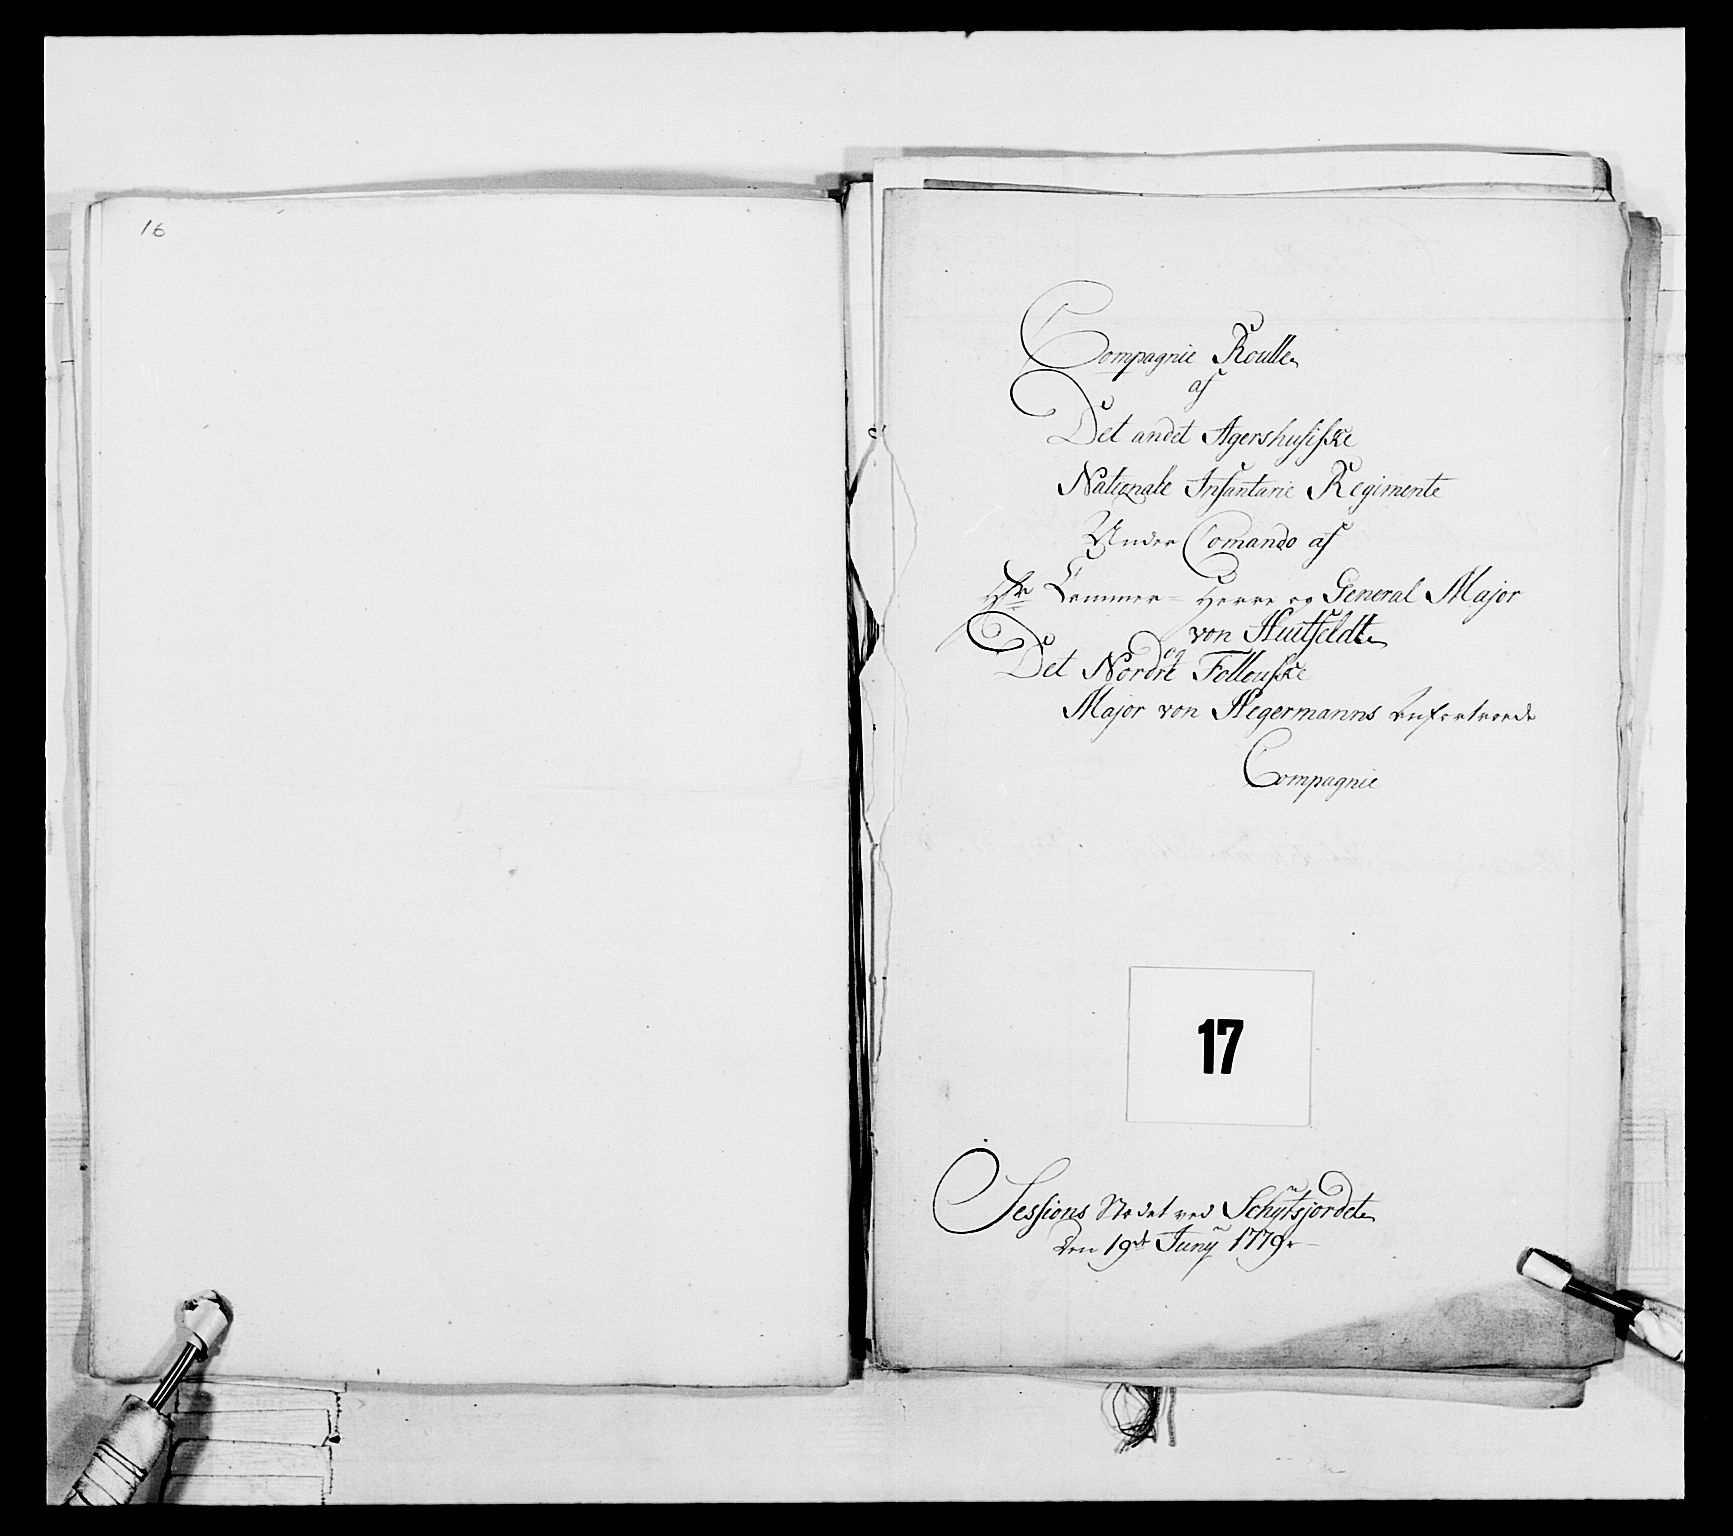 16
Compagnie Roulle
af
Det andet Agershusiske
Nationale Infanterie Regimente
Under Comando af
Hr Cammer-Herre og General Major
von Huitfeldt
og
Det Nordre Follouske
Major von Hegermanns anfortroede
Compagnie
17
Sessions Stedet ved Schÿtsjordet
den 19de Junÿ 1779